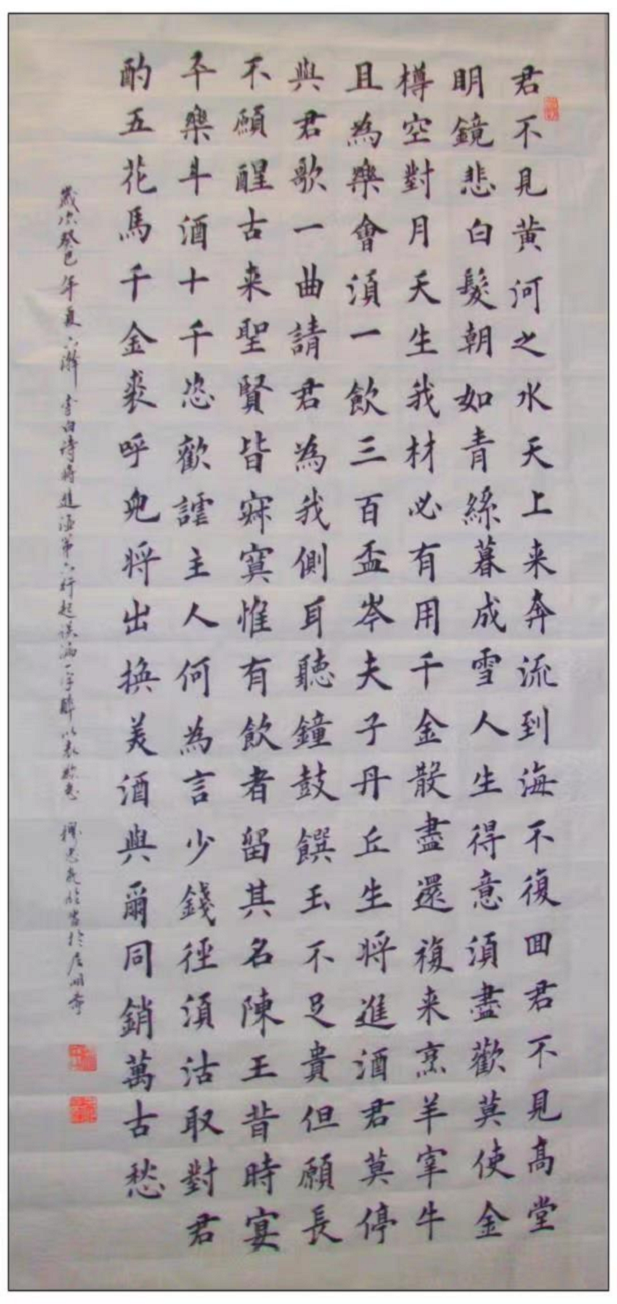 君不見黄河之水天上来奔流到海不復回君不見高堂
明鏡悲白髮朝如青絲暮成雪人生得意須盡歡莫使金
樽空對月天生我材必有用千金散盡還復来烹羊宰牛
且為樂會須一飲三百盃岑夫子丹丘生将進酒君莫停
與君歌一曲請君為我側耳聽鐘鼓饌玉不足貴但願長
不願醒古来聖賢皆寂寞惟有飲者留其名陳王昔時宴
平樂斗酒十千恣歡謔主人何為言少錢徑須沽取對君
酌五花馬千金裘呼兒将出換美酒與爾同銷萬古愁
歲次癸巳年夏 書白詩将進酒第六行起誤漏一字醉以表歉意